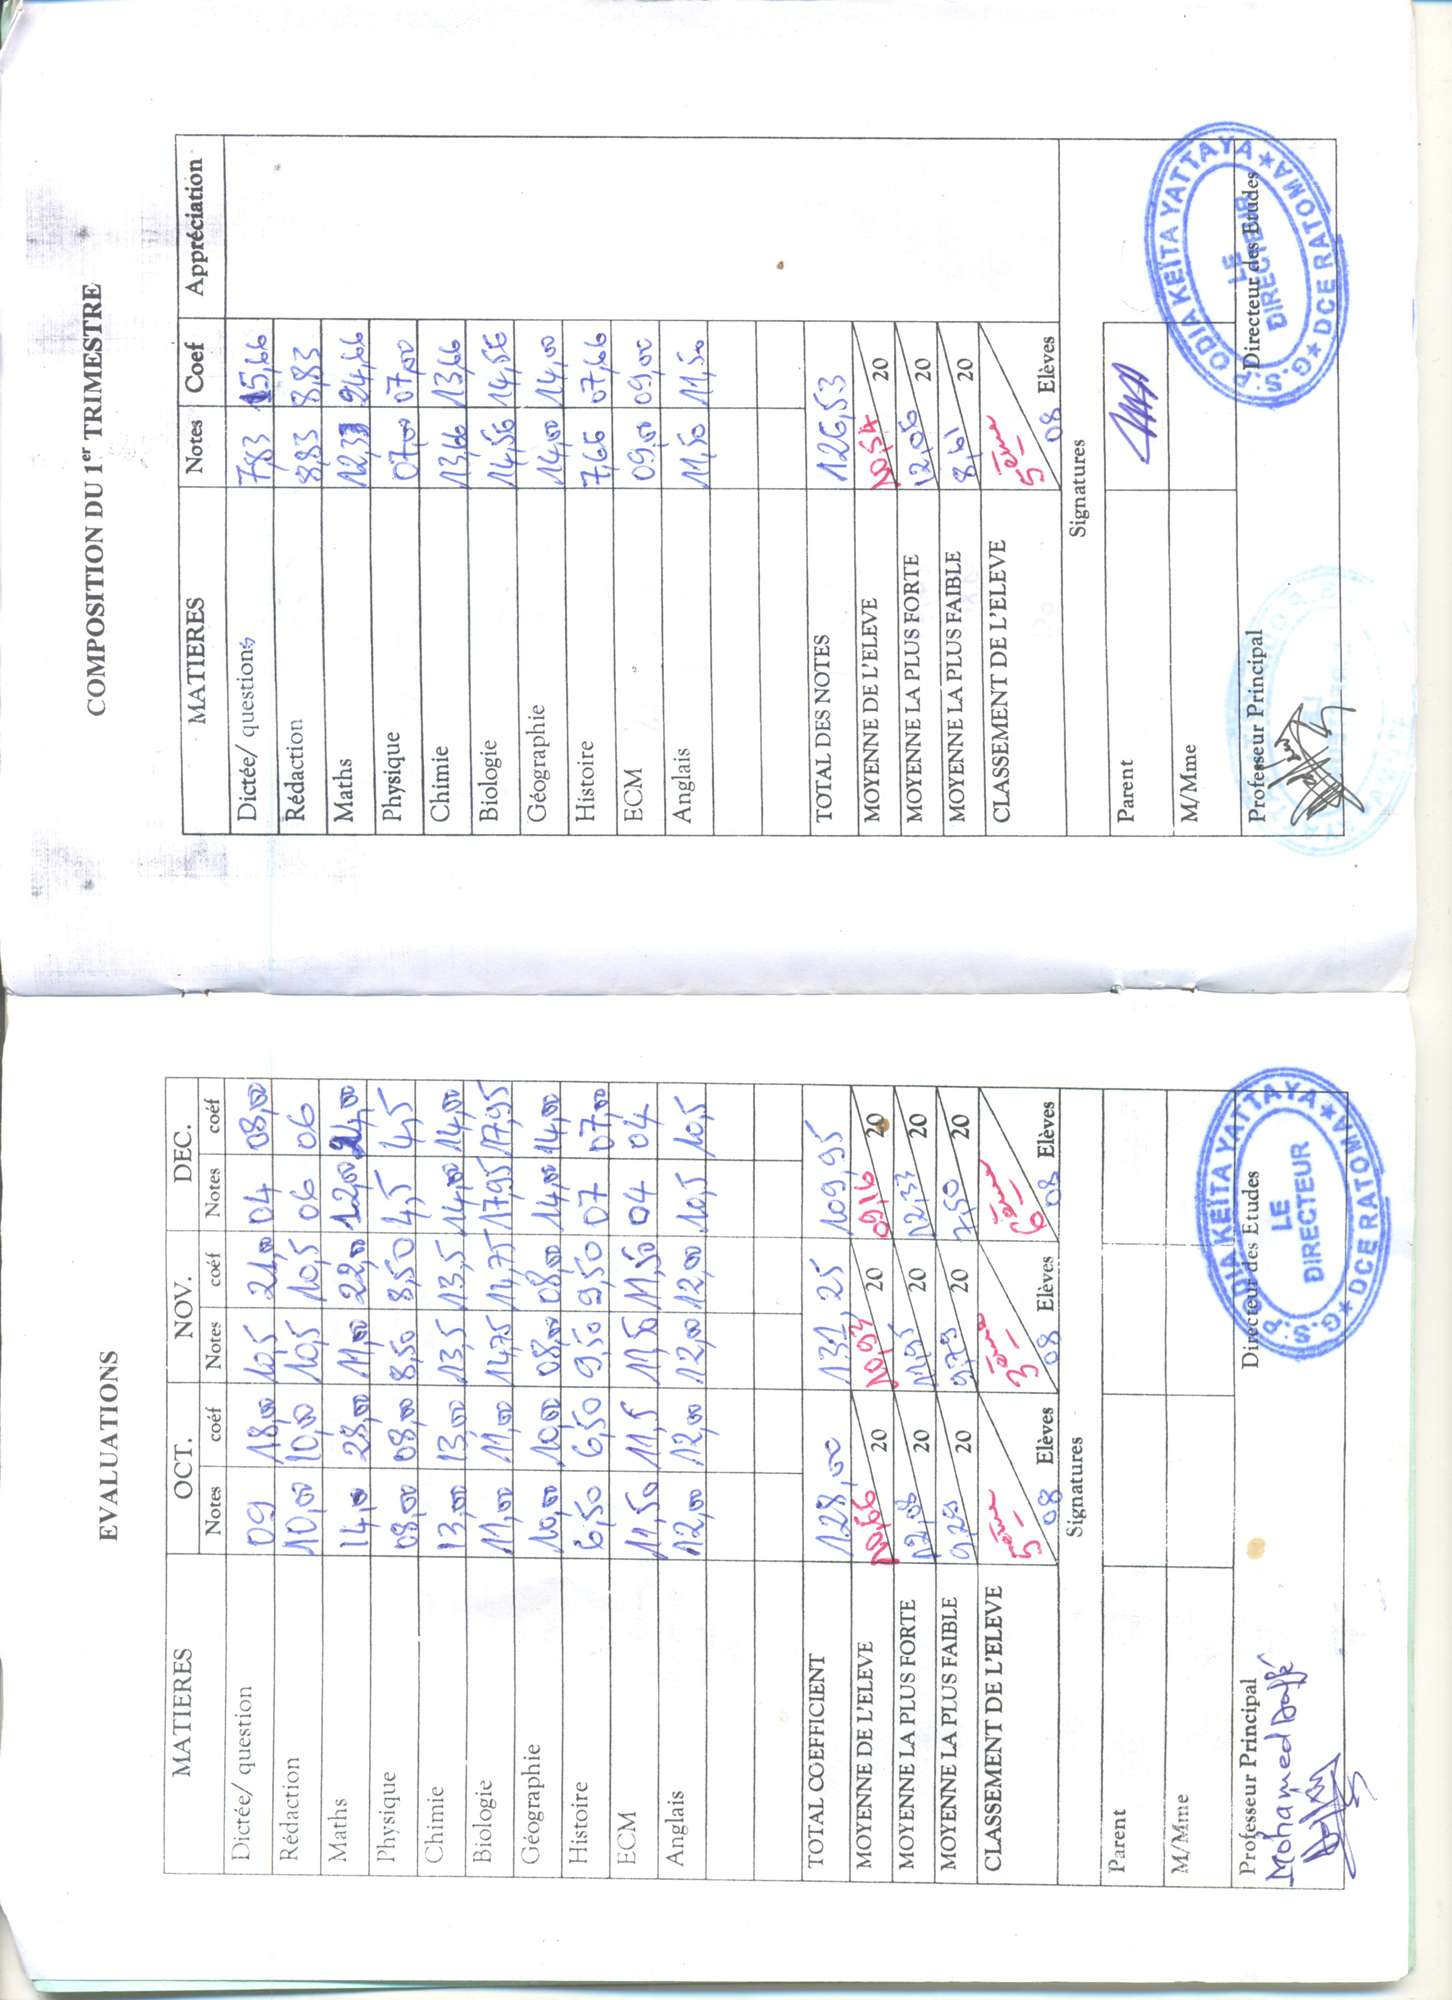 EVALUATIONS
MATIERES OCT. NOV. DEC.
Notes coéf Notes coéf Notes coéf
Dictée/ question 09 18,00 10,5 21,00 04 08,00
Rédaction 10,00 10,00 10,5 10,5 06 06
Maths 14,00 28,00 11,00 22,00 12,00 24,00
Physique 08,00 08,00 8,50 8,50 4,5 4,5
Chimie 13,00 13,00 13,5 13,5 14,00 14,00
Biologie 11,00 11,00 14,75 14,75 17,95 17,95
Géographie 10,00 10,00 08,00 08,00 14,00 14,00
Histoire 6,50 6,50 9,50 9,50 07 07,00
ECM 11,50 11,5 11,50 11,50 04 04
Anglais 12,00 12,00 12,00 12,00 10,5 10,5
TOTAL COEFFICIENT 128,00 131,25 109,95
MOYENNE DE L'ELEVE 10,66 20 10,93 20 09,16 20
MOYENNE LA PLUS FORTE 12,08 20 11,95 20 12,33 20
MOYENNE LA PLUS FAIBLE 9,29 20 9,79 20 7,50 20
CLASSEMENT DE L'ELEVE 5ème 08 Elèves 3ème 08 Elèves 6ème 08 Elèves
Signatures
Parent
M/Mme
Professeur Principal Directeur des Etudes
Mohamed Daffé
G.S.P ODIA KEÏTA YATTAYA ★ DCE RATOMA ★
LE
DIRECTEUR
COMPOSITION DU 1er TRIMESTRE
MATIERES Notes Coef Appréciation
Dictée/ questions 7,83 15,66
Rédaction 8,83 8,83
Maths 12,33 24,66
Physique 07,00 07,00
Chimie 13,66 13,66
Biologie 14,56 14,56
Géographie 14,00 14,00
Histoire 7,66 07,66
ECM 09,00 09,00
Anglais 11,50 11,50
TOTAL DES NOTES 126,53
MOYENNE DE L'ELEVE 10,54 20
MOYENNE LA PLUS FORTE 12,06 20
MOYENNE LA PLUS FAIBLE 8,61 20
CLASSEMENT DE L'ELEVE 5ème 08 Elèves
Signatures
Parent
M/Mme
Professeur Principal Directeur des Etudes
G.S.P ODIA KEÏTA YATTAYA ★ DCE RATOMA ★
LE
DIRECTEUR